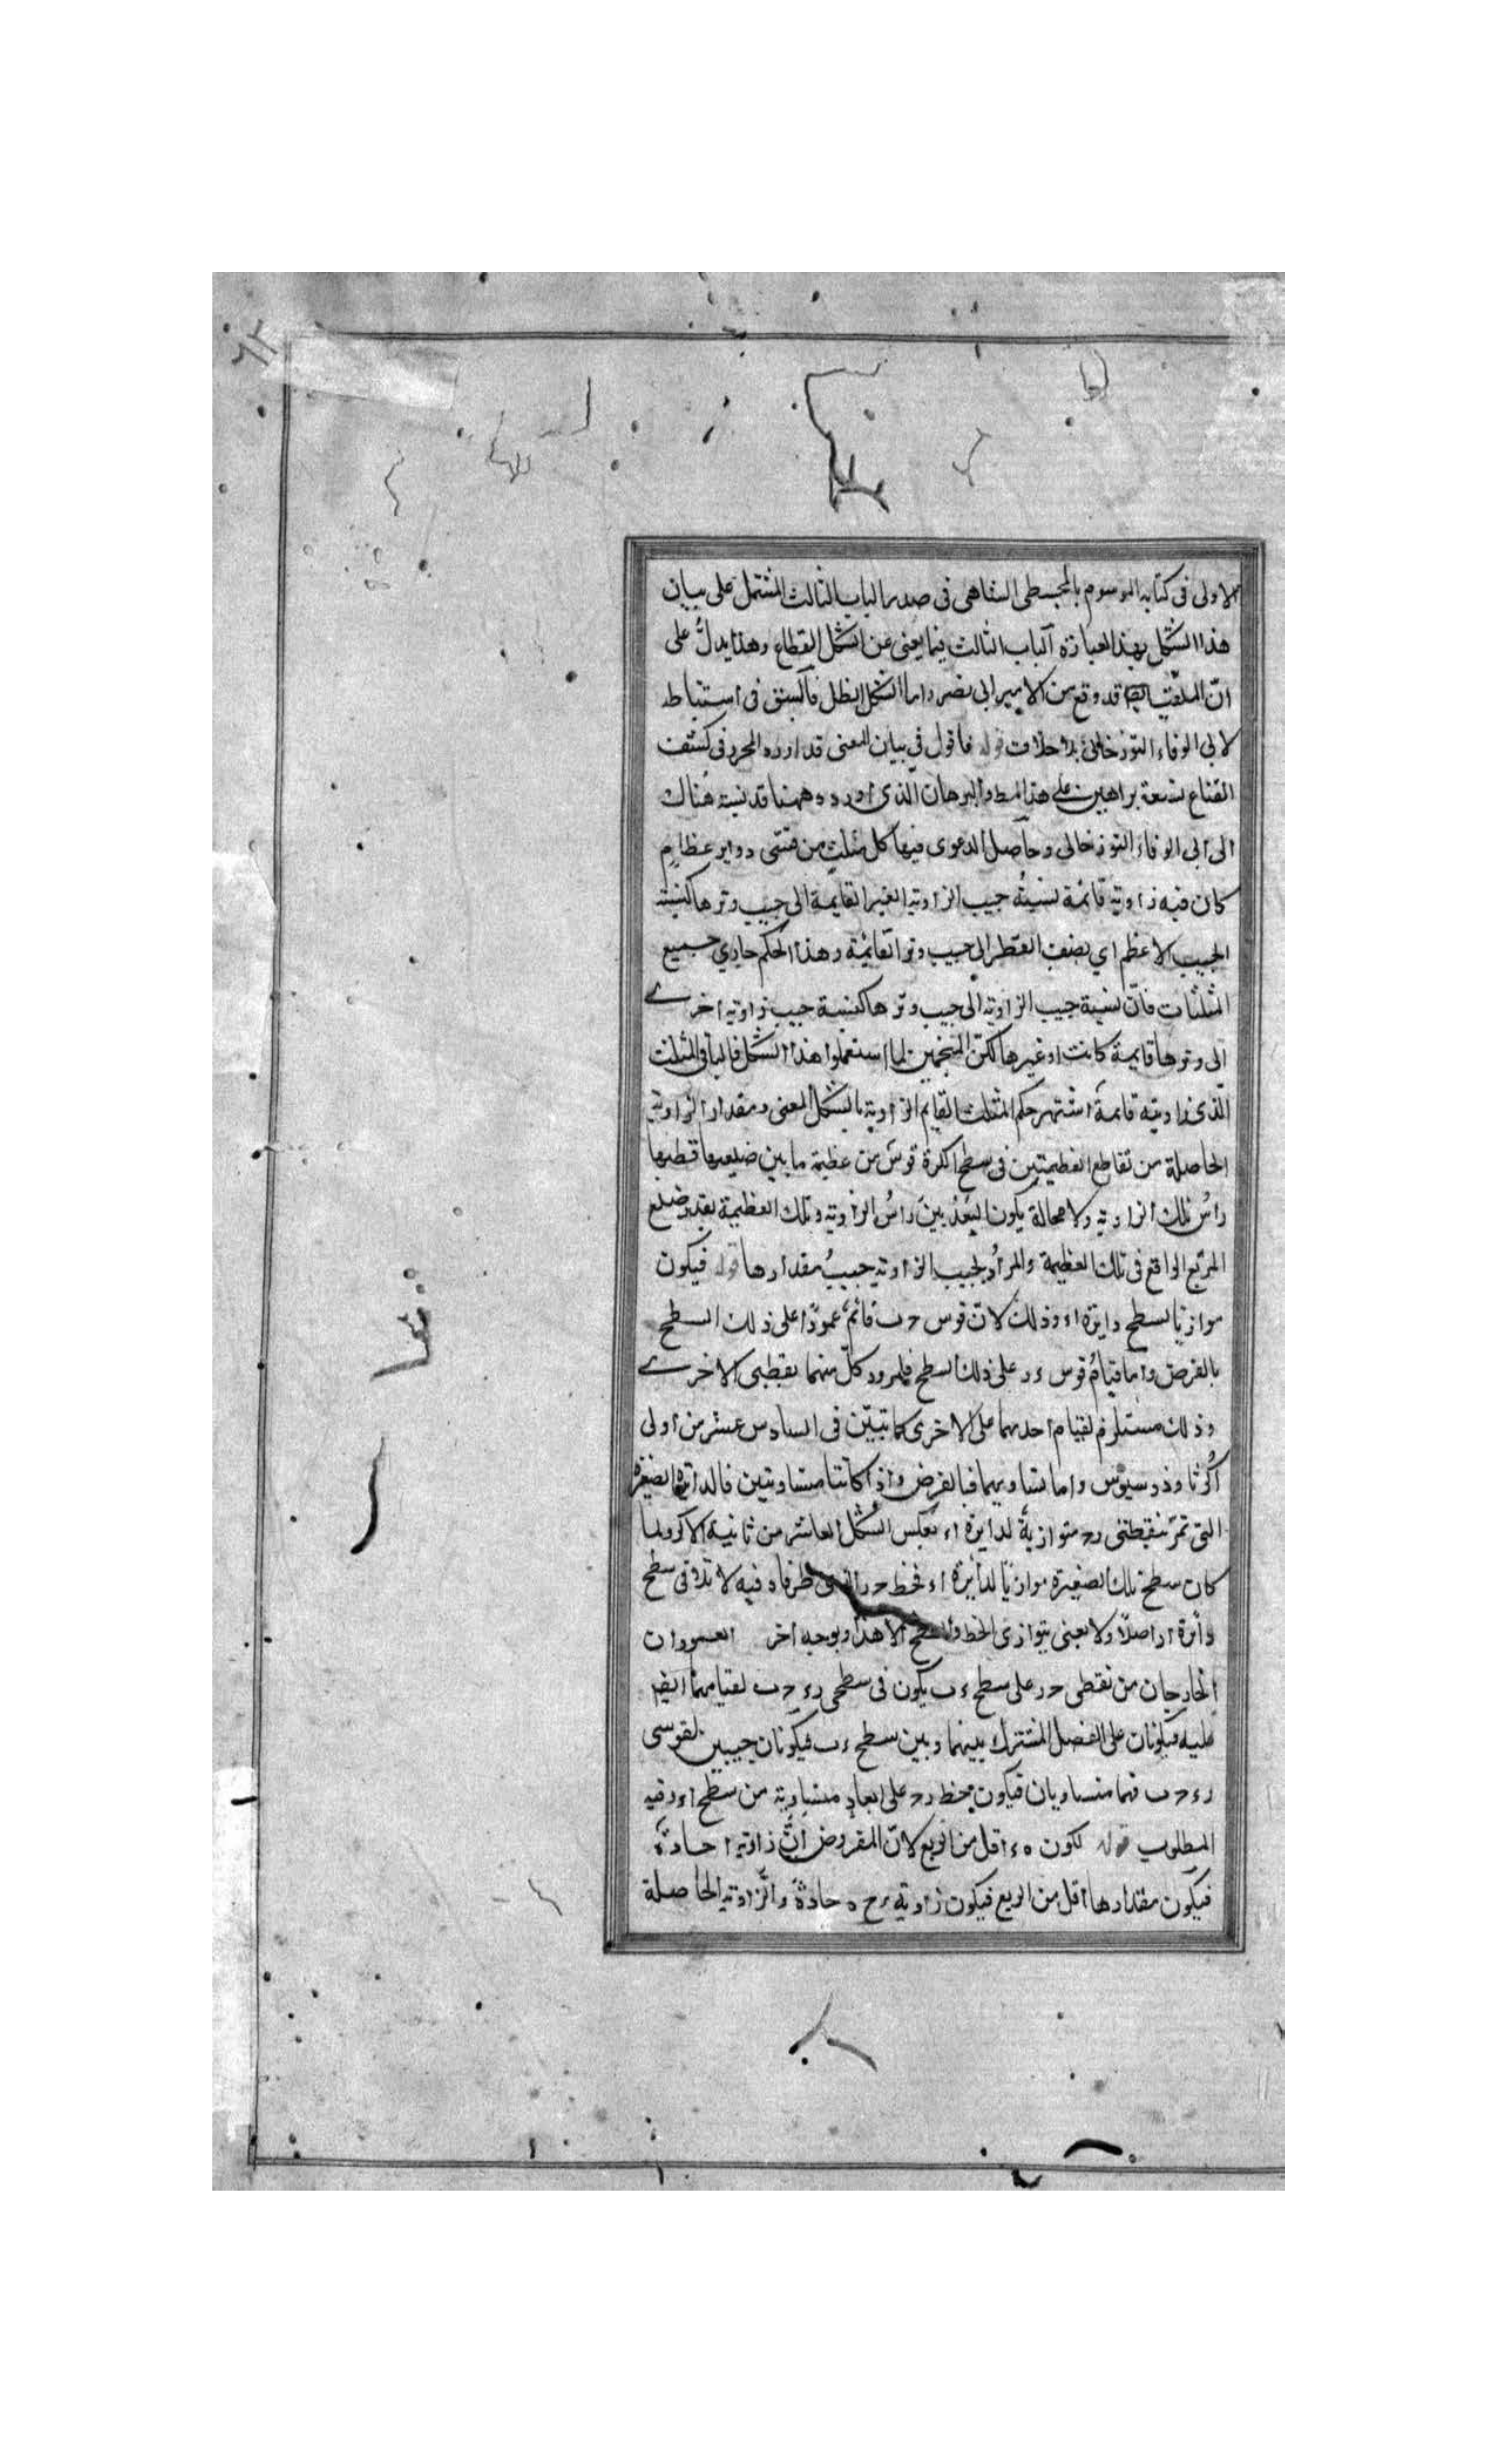 الاولى فى كتابه الموسوم بالمجسطى الشاهى فى صدر الباب الثالث المشتمل على بيان
هذا الشكل بهذا العبارة الباب الثالث فيما يغنى عن الشكل القطاع وهذا يدلُّ على
انّ الملقّب قد وقع من الامير ابى نصر واما الشكل الظل فالسبق فى استنباطه
لابى الوفاء البوزجانى بلا خلاف قوله فاقول فى بيان المغنى قد اورده المحرر فى كشف
القناع بتسعة براهين على هذا المط والبرهان الّذى اورده ههنا قد نسبه هُناك
الى ابى الوفاء البوزجانى وحاصل الدعوى فيها كل مثلث من قسى دواير عظامٍ
كان فيه زاوية قائمة نسبةُ جيب الزاوية الغير القايمة الى جيب وترها كنسبة
الجيب الاعظم اي نصف القطر الى جيب وتر القائمة وهذا الحكم جاري جميع
المثلثات فانّ نسبة جيب الزاوية الى جيب وترها كنسبة جيب زاوية اخرى
الى وترها قايمة كانت او غيرها لكنّ المنجمين لما استعملوا هذا الشكل فى المثلث
الّذى زاويته قايمةٌ اشتهر حكم المثلث القايم الزاوية بالشكل المغنى ومقدار الزاوية
الحاصلة من تقاطع العظيمتين فى سطح الكرة قوسٌ من عظيمة ما بين ضلعيها قطبها
راسُ تلك الزاوية ولا محالة يكون البُعدُ بين راسُ الزاوية وتلك العظيمة بقدر ضلع
المربّع الواقع فى تلك العظيمة والمرادُ بجيب الزاوية جيبُ مقدارها قوله فيكون
موازيًا لسطح دايرة اء وذلك لانّ قوس حب قائمٌ عمودًا على ذلك السطح
بالفرض واما قيامُ قوس ءر على ذلك السطح فلمرور كلّ منهما بقطبى الاخرى
وذلك مستلزم لقيام احديهما على الاخرى كما تبيّن فى السادس عشر من اولى
اُكَر ثاوذوسيوس واما تساويهما فبالفرض واذا كانتا متساويتين فالدائرة الصغيرة
التى تمرّ بنقطتى رح متوازيةٌ لدايرة اء بعكس الشكل العاشر من ثانية الاكر ولما
كان سطح تلك الصغيرة موازيًا لدائرة اء فخط حر الذى طرفاه فيه لا تلاقى سطح
دائرة ار اصلًا ولا يعنى بتوازى الخط والسطح الا هذا وبوجه اخر العمودان
الخارجان من نقطتى حر على سطح ءب يكون فى سطحى رء حب لقيامهما ايضا
عليه فيكونان على الفصل المشترك بينهما وبين سطح ءب فيكونان جيبين لقوسى
رء حب فهما متساويان فيكون خط رح على ابعادٍ متساوية من سطح اء وفيه
المطلوب قوله لكون هء اقل من الربع لانّ المفروض انّ زاوية ا حادةٌ
فيكون مقدارها اقل من الربع فيكون زاوية رح ه حادةً والزاوية الحاصلة